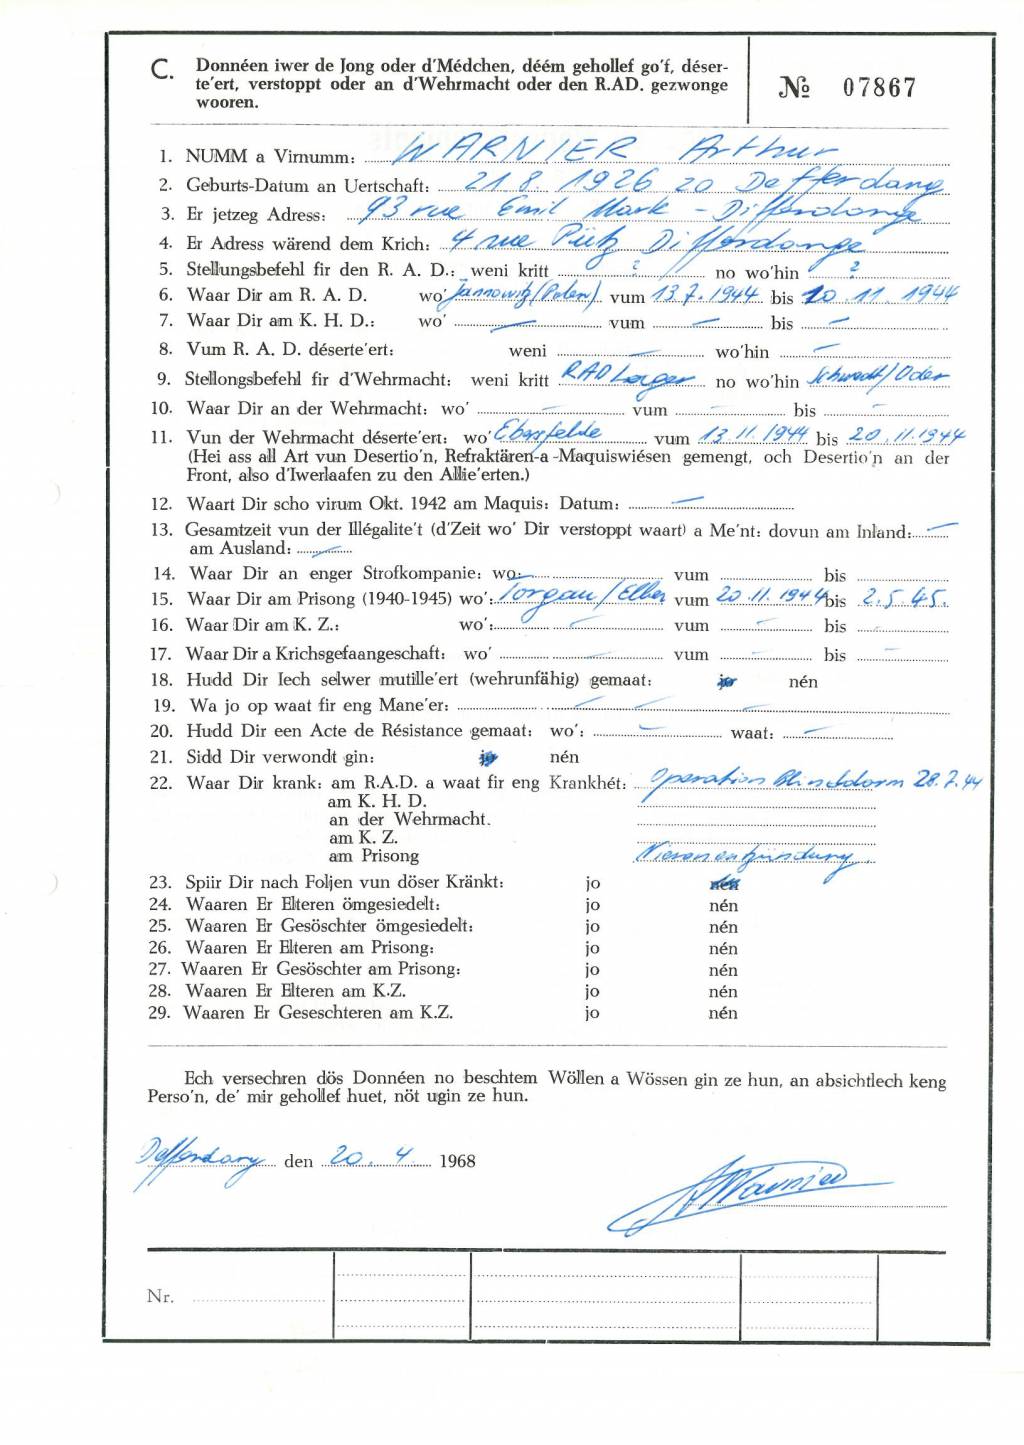 C. Donnéen iwer de Jong oder d'Médchen, déém gehollef go'f, déser-
te'ert, verstoppt oder an d'Wehrmacht oder den R.AD. gezwonge
wooren.
№ 07867
1. NUMM a Virnumm: WARNIER Arthur
2. Geburts-Datum an Uertschaft: 21 8. 1926 zo Defferdang
3. Er jetzeg Adress: 93 rue Emil Mark - Differdange
4. Er Adress wärend dem Krich: 4 rue Pütz Differdange
5. Stellungsbefehl fir den R. A. D.: weni kritt ? no wo'hin ?
6. Waar Dir am R. A. D. wo' Jannowitz (Polen) vum 13.7.1944 bis 10.11.1944
7. Waar Dir am K. H. D.: wo' — vum — bis —
8. Vum R. A. D. déserte'ert: weni — wo'hin —
9. Stellongsbefehl fir d'Wehrmacht: weni kritt RAD Lager no wo'hin Schwedt/Oder
10. Waar Dir an der Wehrmacht: wo' — vum — bis —
11. Vun der Wehrmacht déserte'ert: wo' vum 13.11.1944 bis 20.11.1944
(Hei ass all Art vun Desertio'n, Refraktären-a-Maquiswiésen gemengt, och Desertio'n an der
Front, also d'Iwerlaafen zu den Allie'erten.)
12. Waart Dir scho virum Okt. 1942 am Maquis: Datum: —
13. Gesamtzeit vun der Illégalite't (d'Zeit wo' Dir verstoppt waart) a Me'nt: dovun am Inland: —
am Ausland: —
14. Waar Dir an enger Strofkompanie: wo: — vum bis
15. Waar Dir am Prison͏g (1940-1945) wo': Torgau/Elbe vum 20.11.1944 bis 2.5.45.
16. Waar Dir am K. Z.: wo': — vum — bis —
17. Waar Dir a Krichsgefaangeschaft: wo' — vum — bis —
18. Hudd Dir Iech selwer mutille'ert (wehrunfähig) gemaat: jo nén
19. Wa jo op waat fir eng Mane'er: — — —
20. Hudd Dir een Acte de Résistance gemaat: wo': — waat: —
21. Sidd Dir verwondt gin: jo nén
22. Waar Dir krank: am R.A.D. a waat fir eng Krankhét: Operation Blinddarm 28.7.44
am K. H. D.
an der Wehrmacht.
am K. Z.
am Prisong Nierenentzündung.
23. Spiir Dir nach Foljen vun döser Kränkt: jo nén
24. Waaren Er Elteren ömgesiedelt: jo nén
25. Waaren Er Gesöschter ömgesiedelt: jo nén
26. Waaren Er Elteren am Prisong: jo nén
27. Waaren Er Gesöschter am Prisong: jo nén
28. Waaren Er Elteren am K.Z. jo nén
29. Waaren Er Geseschteren am K.Z. jo nén
Ech versechren dös Donnéen no beschtem Wöllen a Wössen gin ze hun, an absichtlech keng
Perso'n, de' mir gehollef huet, nöt ugin ze hun.
Defferdang den 20. 4 1968
AWarnier
Nr.